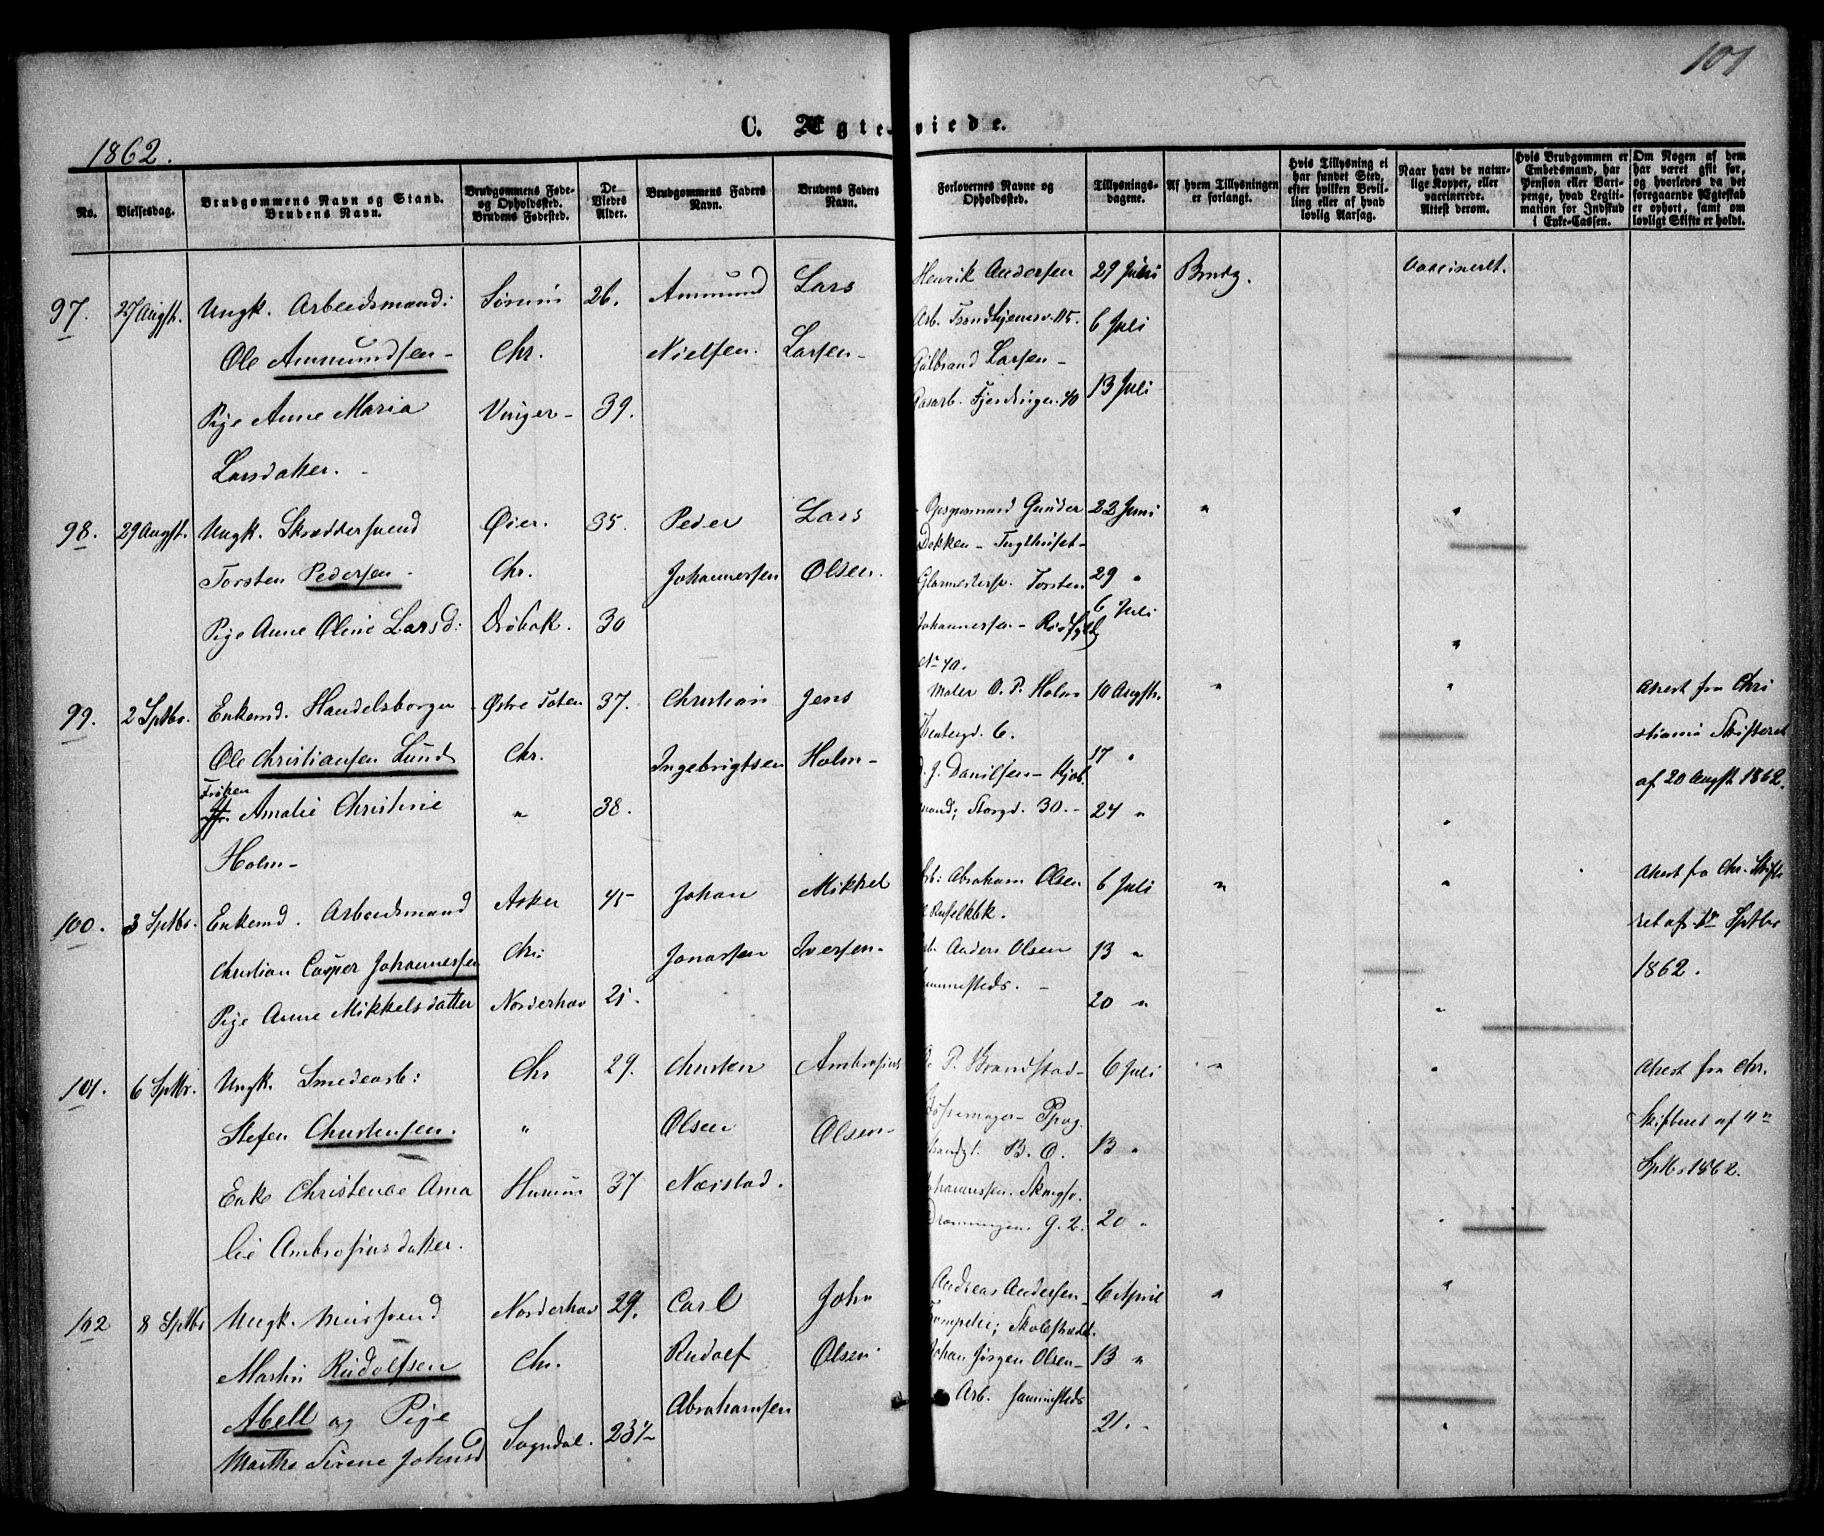 101
C. Ægteviede.
1862.
No.
Vielsesdag.
Brudgommens Navn og Stand.
Brudens Navn.
Brudgommens Føde-
og Opholdssted.
Brudens Fødested.
De
Viedes
Alder.
Brudgommens Faders
Navn.
Brudens Faders
Navn.
Forlovernes Navne og
Opholdssted.
Tillysnings-
dagene.
Af hvem Tillysningen
er forlangt.
Hvis Tillysning ei
har fundet Sted,
efter hvilken Bevil-
ling eller af hvad
lovlig Aarsag.
Naar havt de natur-
lige Kopper, eller
vaccinerede.
Attest derom.
Hvis Brudgommen er
Embedsmand, har
Pension eller Vart-
penge, hvad Legiti-
mation for Indskud
i Enke-Cassen.
Om Nogen af dem
har været gift før,
og hvorledes da det
foregaaende Ægteskab
er ophørt, samt om
lovligt Skifte er holdt.
97. 27 Augst. Ungk. Arbeidsmand: Sörum 26. Ammund Lars Henrik Andersen 29 Juni Brudg. Vaccineret.
Arb. Trondhjemsv. 115. 6 Juli
Ole Ammundsen Chr. Nielsen. Larsen Gulbrand Larsen
Pige Anne Maria Vinger 39. Fjerdingen 40 13 Juli
Larsdatter.
98. 29 Augst. Ungk. Skræddersvend Øier. 35. Peder Lars Opsynsmand Gunder 22 Juni "
Dokken - Tugthuset
Torsten Pedersen Chr. Johannessen Olsen. Glarmestersv. Torsten 29 "
Pige Anne Oline Larsd: Drøbak. 30 Johannessen 6 Juli "
No 40.
99. 2 Sptbr. Enkemd. Handelsborger Østre Toten 37. Christian Jens Maler O. P. Holm 10 Augstr. " " Attest fra Chri
Ole Christiansen Lund Chr. Ingebrigtsen Holm 6. 17 " stiania Skifteret
Frøken
Amalie Christine " 38. Danielsen - Kjøb af 20 Augst 1862.
mand; Storgd. 30. 24 " "
Holm
100. 3 Sptbr. Enkemd. Arbeidsmand Asker 45 Johan Mikkel Arb: Abraham Olsen 6 Juli " " Attest fra Chr. Skifte
ret af 1ste Sptbr
Christian Casper Johannessen Chr: Jonassen Iversen Anders Olsen 13 " 1862.
Pige Anne Mikkelsdatter Norderhov 25. 20 " "
101. 6 Sptbr. Ungk. Smedearb: Chr 29. Christen Ambrosius P. Brandstad 6 Juli " " Attest fra Chr.
Stefen Christensen. " Olsen Olsen 13 " Skifteret af 4de
B. O.
Enke Christence Ama Hurum 37 Næistad. Johannessen. Sptbr 1862.
Dronningens G. 2. 20 " "
lie Ambrosiusdatter.
102 8 Sptbr Ungk. Norderhov 29. Carl John Andreas Andersen 6 April " "
Skolestrædet.
Martin Rudolfsen Chr. Rudolf Olsen Johan Jörgen Olsen 13 "
Abell og Pige Abrahamsen Arb.
Marthe Sirene Johnsd Sogndal. 23½ 21. "